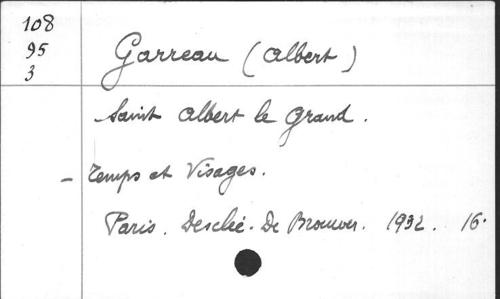 108
95
3
Garreau (Albert)
Saint Albert le Grand.
- Temps et Visages.
Paris. Desclée-De Brouwer. 1932. 16.